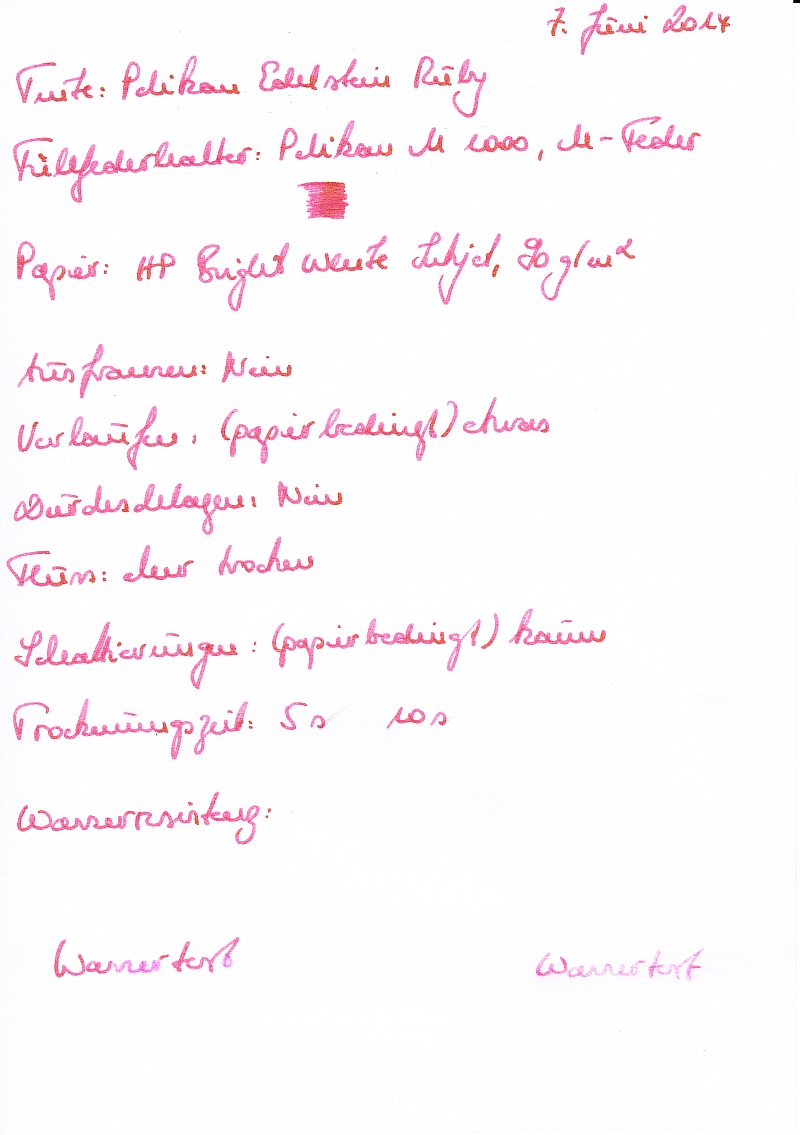 7. Juni 2014
Tinte: Pelikan Edelstein Ruby
Füllfederhalter: Pelikan M 1000, M-Feder
Papier: HP Bright White Inkjet, 90 g/m²
Ausfransen: Nein
Verlaufen: (papierbedingt) etwas
Durchschlagen: Nein
Fluss: eher trocken
Schattierungen: (papierbedingt) kaum
Trocknungszeit: 5 s 10 s
Wasserresistenz:
Wassertest Wassertest